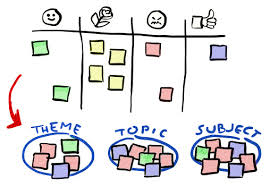 THEME
TOPIC
SUBJECT